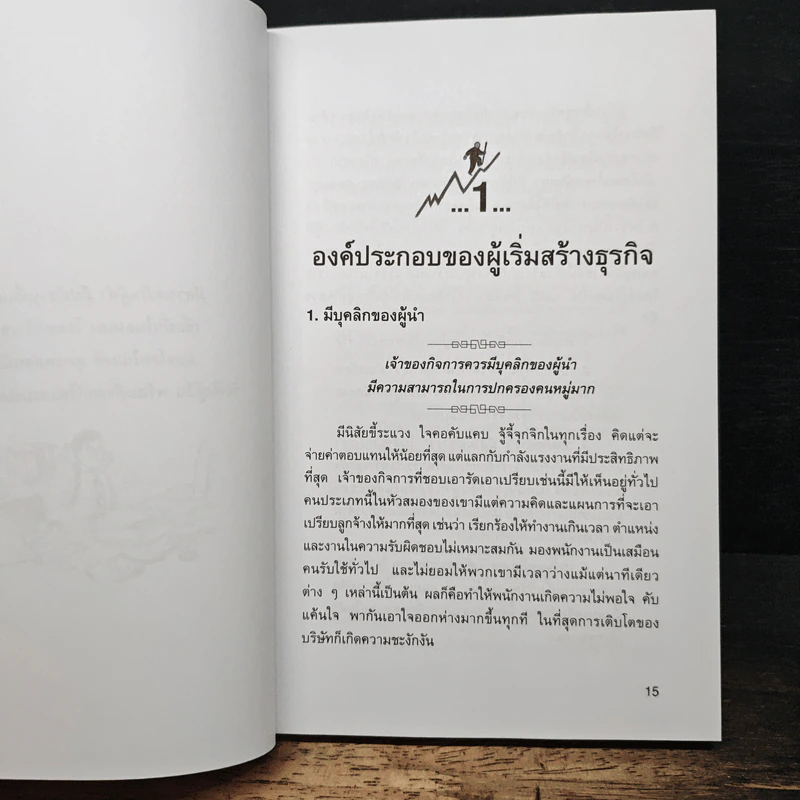 ...1...
องค์ประกอบของผู้เริ่มสร้างธุรกิจ
1. มีบุคลิกของผู้นำ
เจ้าของกิจการควรมีบุคลิกของผู้นำ
มีความสามารถในการปกครองคนหมู่มาก
มีนิสัยขี้ระแวง ใจคอคับแคบ จู้จี้จุกจิกในทุกเรื่อง คิดแต่จะ
จ่ายค่าตอบแทนให้น้อยที่สุด แต่แลกกับกำลังแรงงานที่มีประสิทธิภาพ
ที่สุด เจ้าของกิจการที่ชอบเอารัดเอาเปรียบเช่นนี้มีให้เห็นอยู่ทั่วไป
คนประเภทนี้ในหัวสมองของเขามีแต่ความคิดและแผนการที่จะเอา
เปรียบลูกจ้างให้มากที่สุด เช่นว่า เรียกร้องให้ทำงานเกินเวลา ตำแหน่ง
และงานในความรับผิดชอบไม่เหมาะสมกัน มองพนักงานเป็นเสมือน
คนรับใช้ทั่วไป และไม่ยอมให้พวกเขามีเวลาว่างแม้แต่นาทีเดียว
ต่าง ๆ เหล่านี้เป็นต้น ผลก็คือทำให้พนักงานเกิดความไม่พอใจ คับ
แค้นใจ พากันเอาใจออกห่างมากขึ้นทุกที ในที่สุดการเติบโตของ
บริษัทก็เกิดความชะงักงัน
15